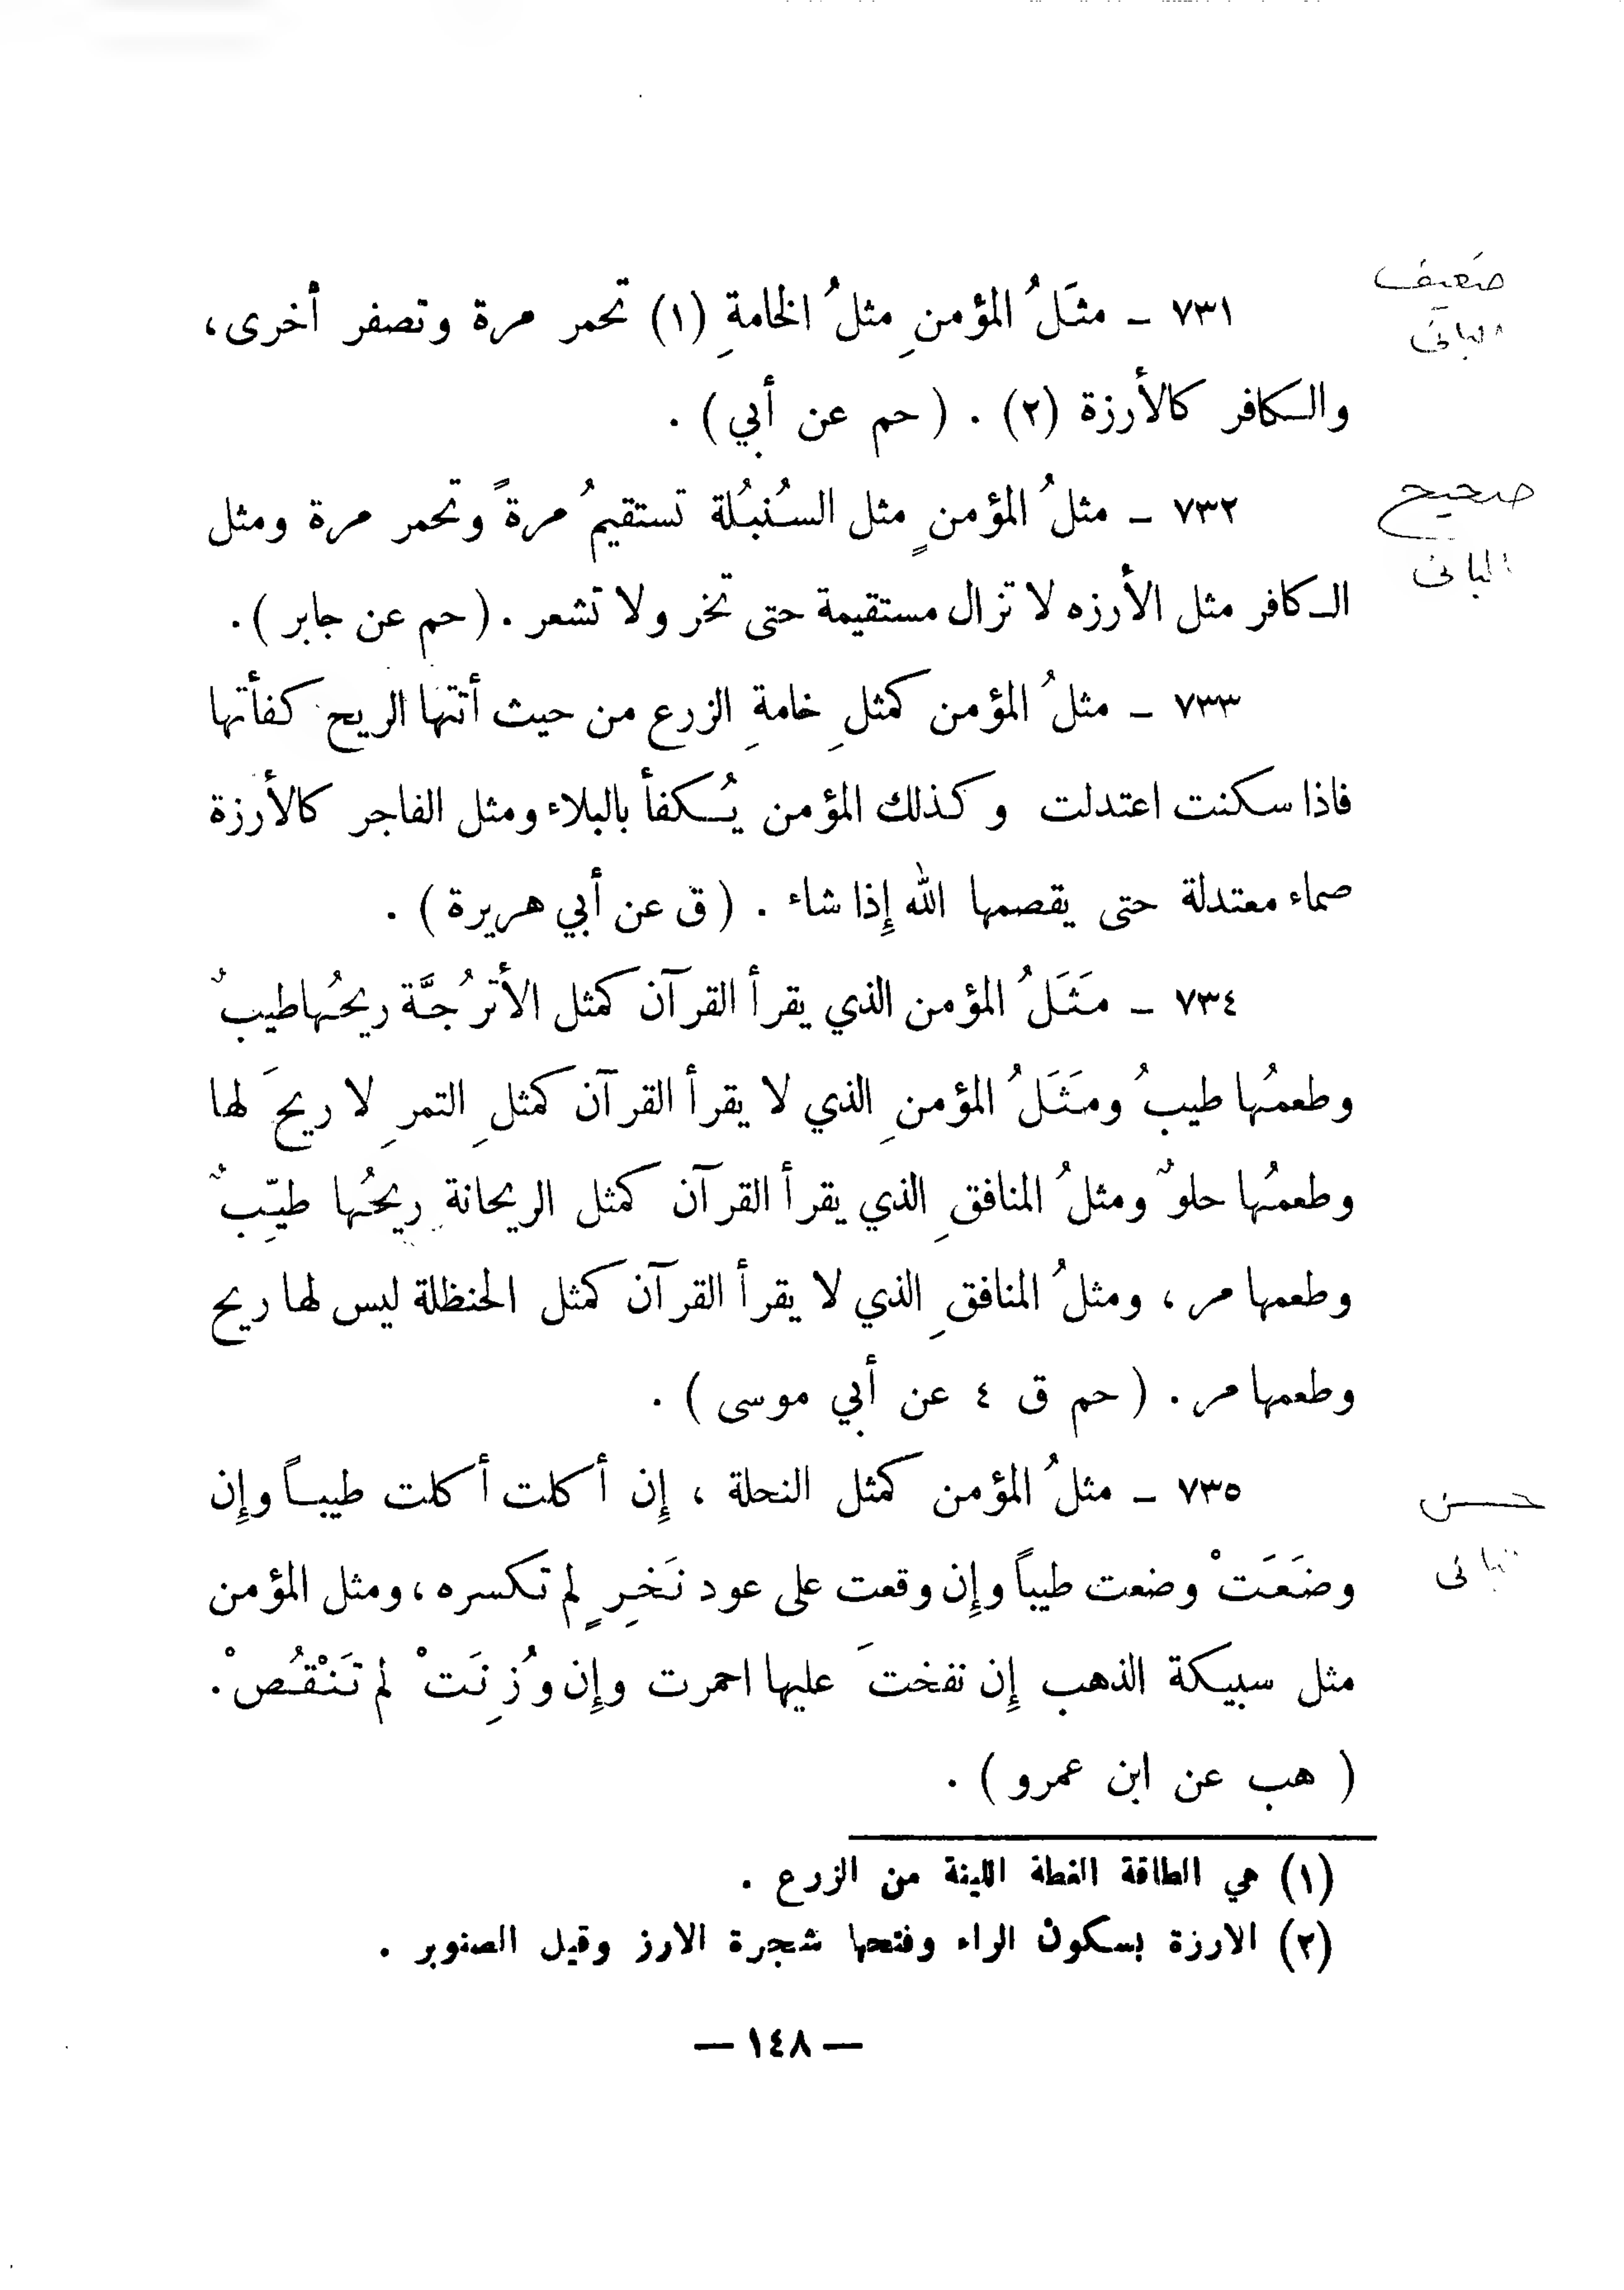 ٧٣١ ـ مثَلُ المؤمنِ مثلُ الخامةِ (١) تحمر مرة وتصفر أخرى،
والكافر كالأرزة (٢) . ( حم عن أبي ) .
ضعيف
الباني
٧٣٢ ـ مثلُ المؤمنٍ مثل السُنبُلة تستقيمُ مرةً وتحمر مرة ومثل
الكافر مثل الأرزه لا تزال مستقيمة حتى تخر ولا تشعر . ( حم عن جابر ) .
صحيح
الباني
٧٣٣ ـ مثلُ المؤمن كمثلِ خامةِ الزرع من حيث أتتها الريح كفأتها
فاذا سكنت اعتدلت وكذلك المؤمن يُكفأ بالبلاء ومثل الفاجر كالأرزة
صماء معتدلة حتى يقصمها الله إذا شاء . ( ق عن أبي هريرة ) .
٧٣٤ ـ مَثَلُ المؤمن الذي يقرأ القرآن كمثل الأترُجَّة ريحُها طيبٌ
وطعمُها طيبُ ومَثَلُ المؤمنِ الذي لا يقرأ القرآن كمثلِ التمرِ لا ريحَ لها
وطعمُها حلوٌ ومثلُ المنافقِ الذي يقرأ القرآن كمثل الريحانة ريحُها طيّبٌ
وطعمها مر ، ومثلُ المنافقِ الذي لا يقرأ القرآن كمثل الحنظلة ليس لها ريح
وطعمها مر . ( حم ق ٤ عن أبي موسى ) .
٧٣٥ ـ مثلُ المؤمن كمثل النحلة ، إن أكلت أكلت طيباً وإن
وضَعَتْ وضعت طيباً وإن وقعت على عود نَخرٍ لم تكسره ، ومثل المؤمن
مثل سبيكة الذهب إن نفختَ عليها احمرت وإن وُزِنَتْ لم تَنْقُصْ .
( هب عن ابن عمرو ) .
حسن
(١) هي الطاقة الغطة اللينة من الزرع .
(٢) الارزة بسكون الراء وفتحها شجرة الارز وقيل الصنوبر .
— ١٤٨ —